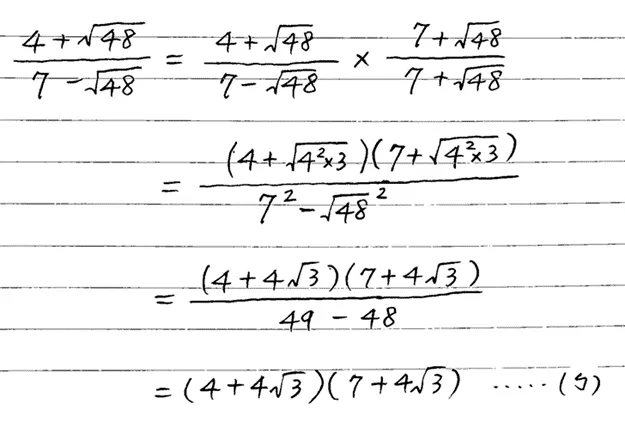 (4+√48)/(7-√48) = (4+√48)/(7-√48) × (7+√48)/(7+√48)
= (4+√(4²×3))(7+√(4²×3))/(7²-√48²)
= (4+4√3)(7+4√3)/(49-48)
= (4+4√3)(7+4√3) ·····(5)